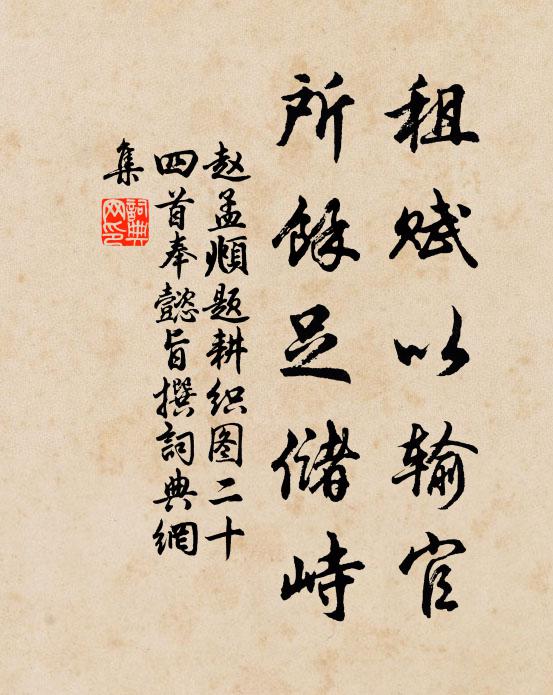 租赋以输官
所馀足储峙
赵孟頫题耕织图二十
四首奉懿旨撰詞典網
集
詞典
网印